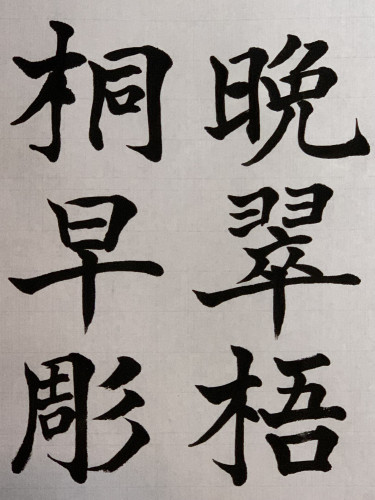 晩翠梧
桐早彫